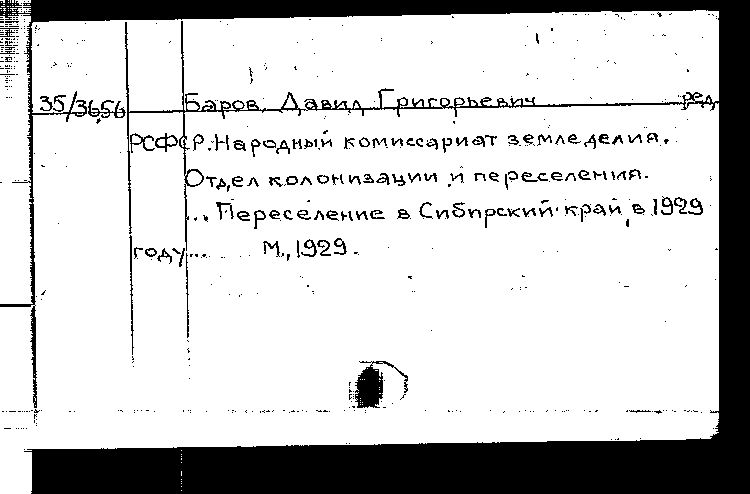 35/3656 Баров, Давид Григорьевич ред.
РСФСР. Народный комиссариат земледелия.
Отдел колонизации и переселения.
... Переселение в Сибирский край в 1929
году... М., 1929.